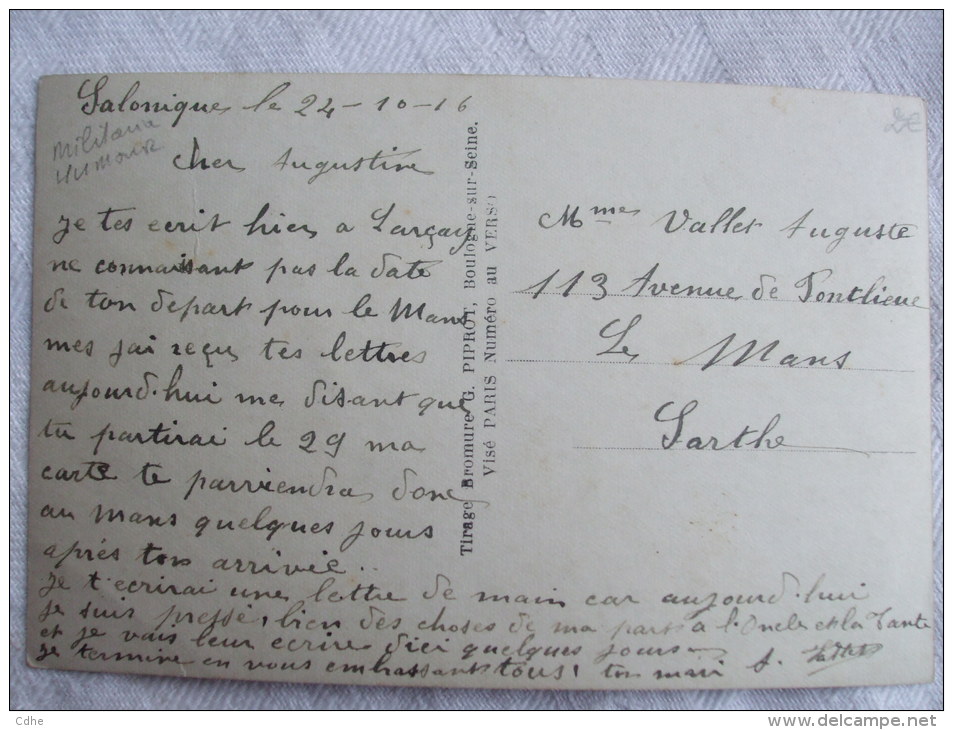 Salonique le 24-10-16
Militaria
Humour
2€
cher Augustine
Je tes ecrit hier a Larçay
ne connaissant pas la date
de ton depart pour le Mans
mes jai reçu tes lettres
aujourd.hui me disant que
tu partirai le 29 ma
carte te parviendra donc
au Mans quelques jours
aprés ton arrivée..
Je t'ecrirai une lettre de main car aujourd.hui
je suis pressé, bien des choses de ma part a l'Oncle et la Tante
et je vais leur ecrire dici quelques jours
Je termine en vous embrassant tous! ton mari A.
Tirage Bromure G. PIPROT, Boulogne-sur-Seine.
Visé PARIS Numéro au VERSO
Mmes Vallet Auguste
113 Avenue de Pontlieue
Le Mans
Sarthe
Cdhe
http://www.delcampe.net